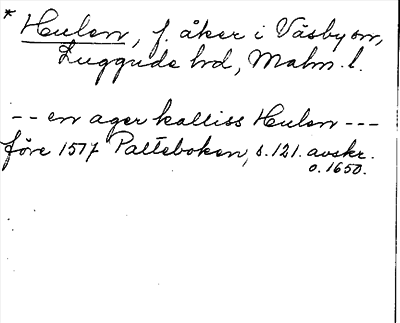 * Hulen, f. åker i Väsby sn,
Luggude hd, Malm. l.
-- en ager kalliss Hulen ---
före 1517 Palteboken, s. 121. avskr.
o. 1650.